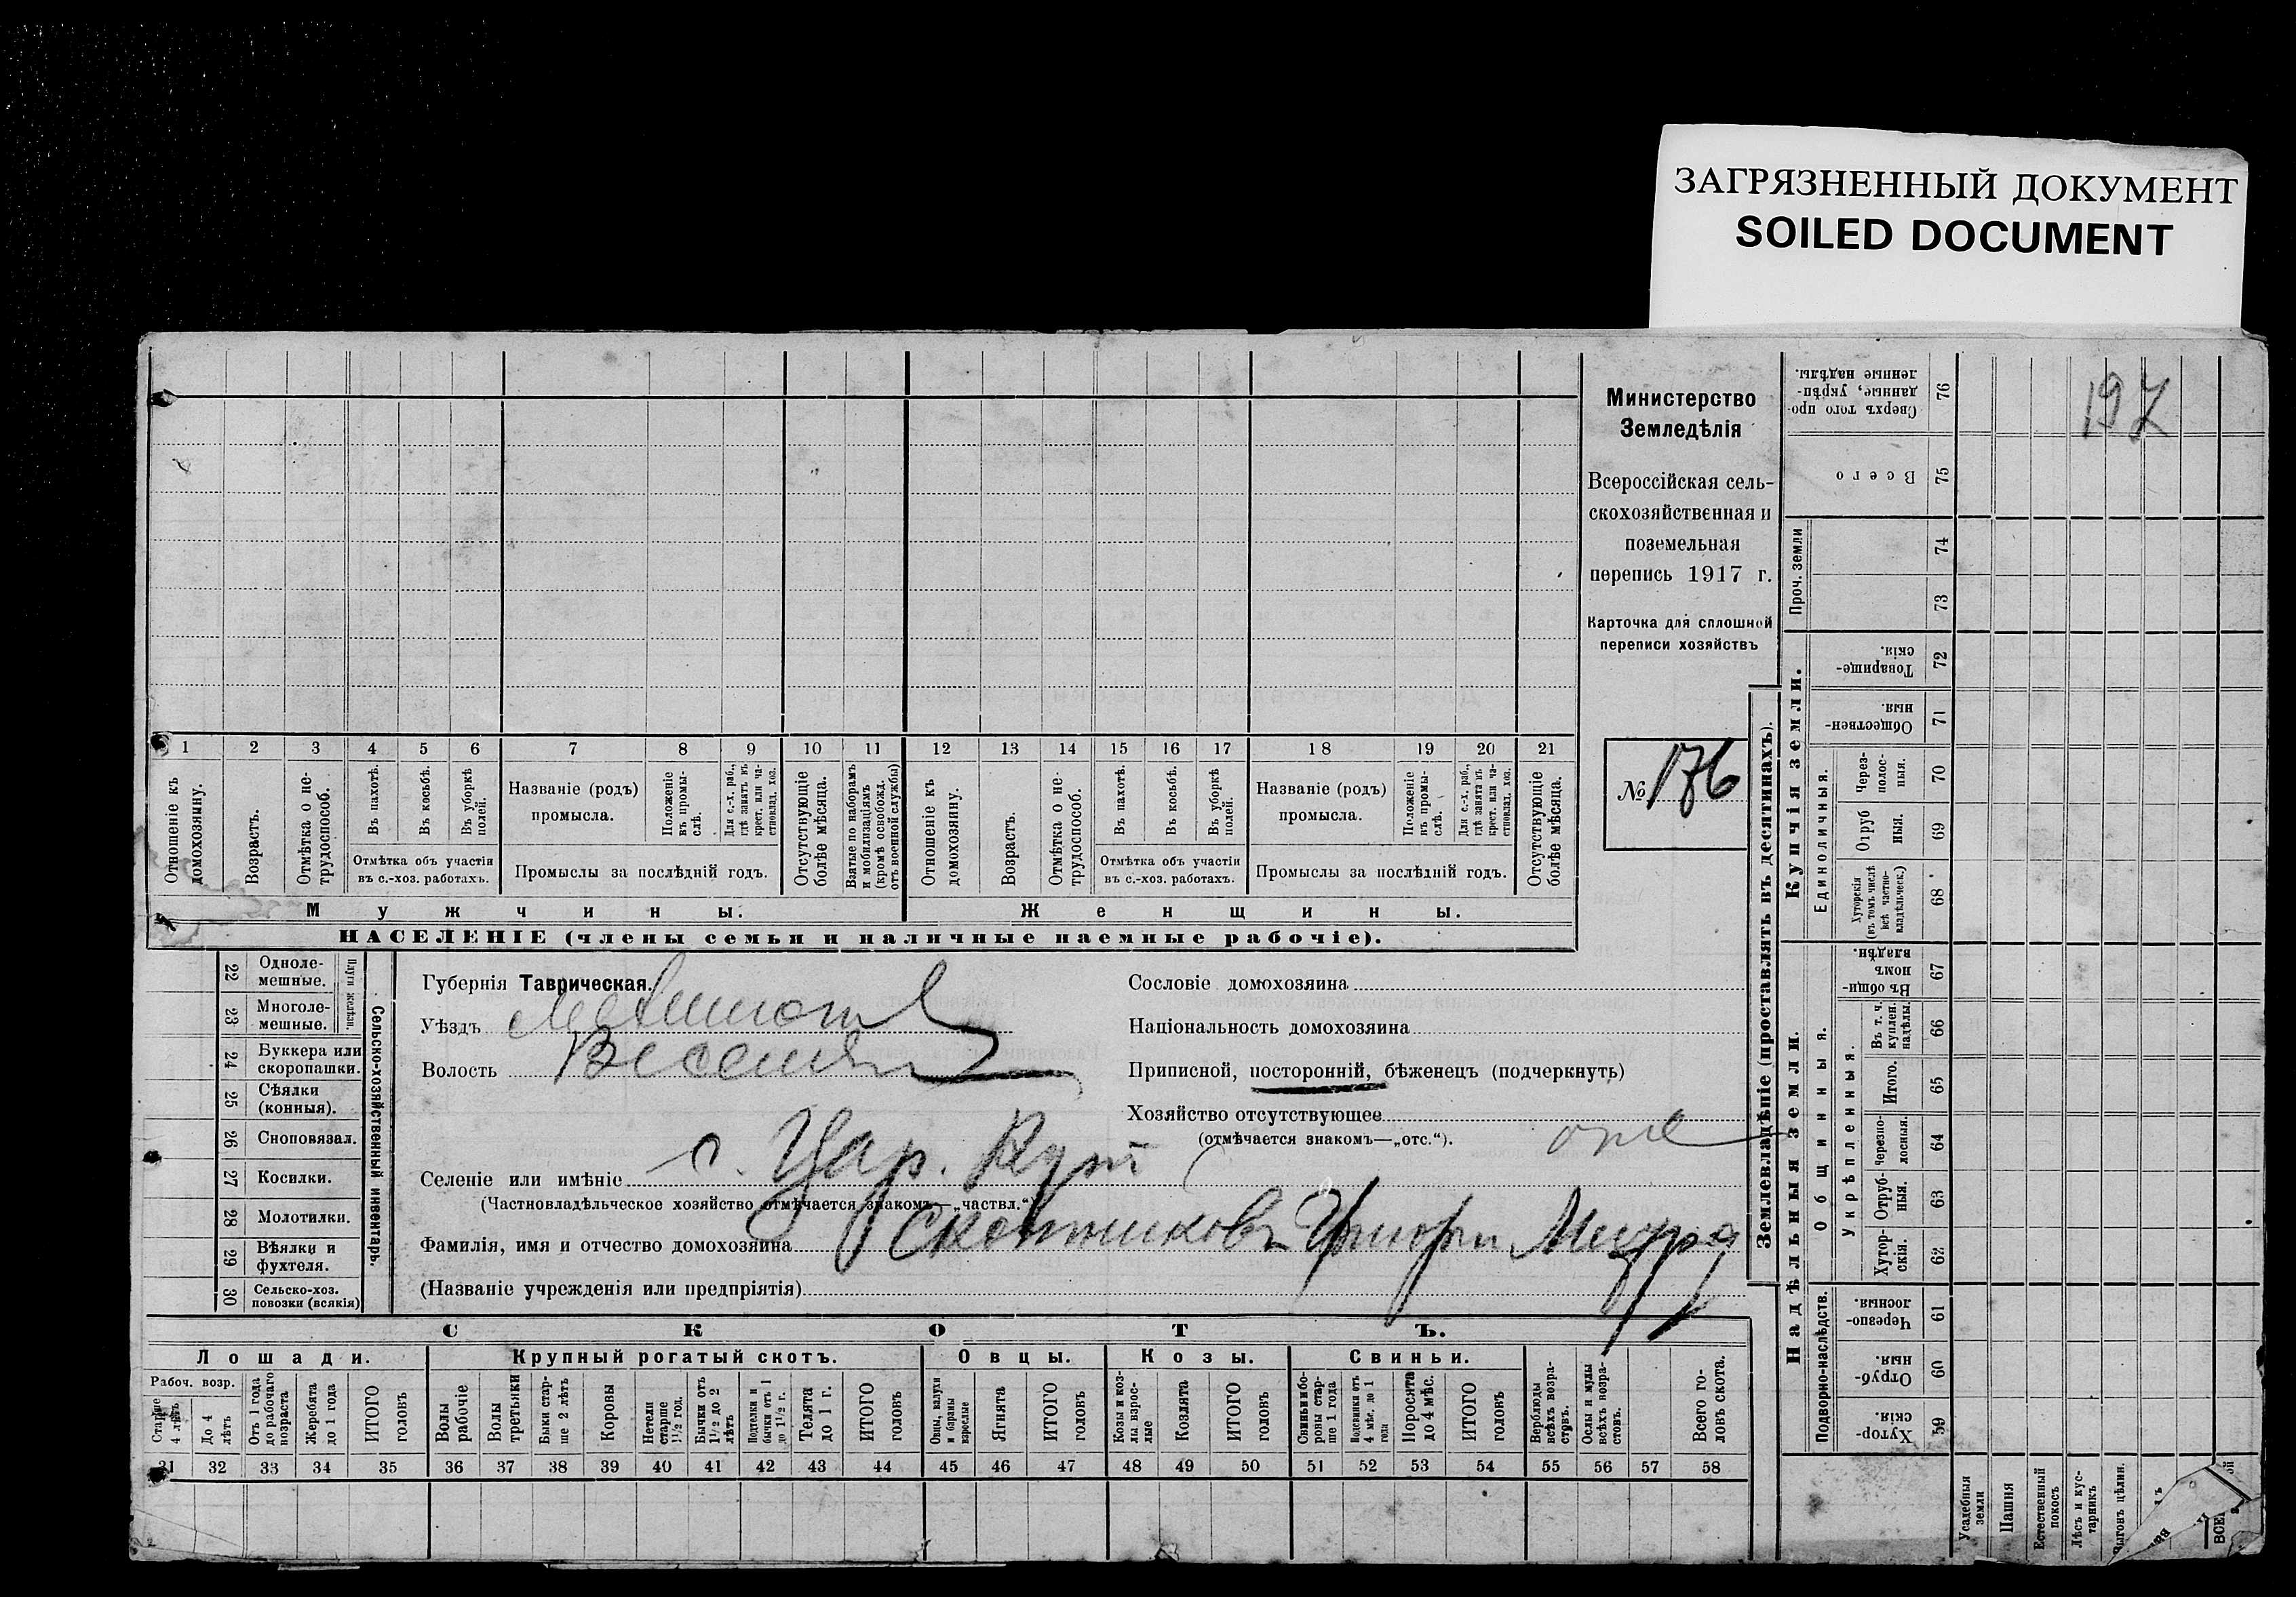 ЗАГРЯЗНЕННЫЙ ДОКУМЕНТ
SOILED DOCUMENT
Министерство
Земледѣлія
Всероссійская сель-
скохозяйственная и
поземельная
перепись 1917 г.
Карточка для сплошной
переписи хозяйствъ
№ 176
197
1 2 3 4 5 6 7 8 9 10 11 12 13 14 15 16 17 18 19 20 21
Отношеніе къ домохозяину.
Возрастъ.
Отмѣтка о не-трудоспособ.
Въ пахотѣ.
Въ косьбѣ.
Въ уборкѣ полей.
Отмѣтка объ участіи
въ с.-хоз. работахъ.
Названіе (родъ)
промысла.
Положеніе въ промы-слѣ.
Для с.-х. раб., гдѣ занятъ въ крест. или ча-стновлад. хоз.
Промыслы за послѣдній годъ.
Отсутствующіе болѣе мѣсяца.
Взятые по наборамъ и мобилизаціямъ (кромѣ освобожд. отъ военной службы)
Отношеніе къ домохозяину.
Возрастъ.
Отмѣтка о не-трудоспособ.
Въ пахотѣ.
Въ косьбѣ.
Въ уборкѣ полей.
Отмѣтка объ участіи
въ с.-хоз. работахъ.
Названіе (родъ)
промысла.
Положеніе въ промы-слѣ.
Для с.-х. раб., гдѣ занята въ крест. или ча-стновлад. хоз.
Промыслы за послѣдній годъ.
Отсутствующіе болѣе мѣсяца.
Мужчины.
Женщины.
НАСЕЛЕНІЕ (члены семьи и наличные наемные рабочіе).
22 Одноле-мешные.
23 Многоле-мешные.
Плуги желѣзн.
24 Буккера или скоропашки.
25 Сѣялки (конныя).
26 Сноповязал.
27 Косилки.
28 Молотилки.
29 Вѣялки и фухтеля.
30 Сельско-хоз. повозки (всякія)
Сельско-хозяйственный инвентарь.
Губернія Таврическая.
Уѣздъ
Волость
Селеніе или имѣніе с. Цар. Кут
(Частновладѣльческое хозяйство отмѣчается знакомъ—„частвл.“)
Фамилія, имя и отчество домохозяина
(Названіе учрежденія или предпріятія)
Сословіе домохозяина
Національность домохозяина
Приписной, посторонній, бѣженецъ (подчеркнуть)
Хозяйство отсутствующее
(отмѣчается знакомъ—„отс.“).
СКОТЪ.
Лошади.
Крупный рогатый скотъ.
Овцы.
Козы.
Свиньи.
Рабоч. возр.
Старше 4 лѣтъ
До 4 лѣтъ
Отъ 1 года до рабочаго возраста
Жеребята до 1 года
ИТОГО головъ
Волы рабочіе
Волы третьяки
Быки стар-ше 2 лѣтъ
Коровы
Нетели старше 1½ год.
Бычки отъ 1½ до 2 лѣтъ
Подтелки и бычки отъ 1 до 1½ г.
Телята до 1 г.
ИТОГО головъ
Овцы, валухи и бараны взрослые
Ягнята
ИТОГО головъ
Козы и коз-лы взрос-лые
Козлята
ИТОГО головъ
Свиньи и бо-ровы стар-ше 1 года
Подсвинки отъ 4 мѣс. до 1 года
Поросята до 4 мѣс.
ИТОГО головъ
Верблюды всѣхъ возра-стовъ.
Ослы и мулы всѣхъ возра-стовъ.
Всего го-ловъ скота.
31 32 33 34 35 36 37 38 39 40 41 42 43 44 45 46 47 48 49 50 51 52 53 54 55 56 57 58
Землевладѣніе (проставлять въ десятинахъ).
Купчія земли.
Надѣльныя земли.
Проч. земли
Единоличныя.
Общинныя.
Укрѣпленныя.
Подворно-наслѣдств.
Сверхъ того про-данные, укрѣп-ленные надѣлы. 76
Всего 75
74
73
Товарище-скія. 72
Обществен-ныя. 71
Через-полос-ныя. 70
Отруб ныя. 69
Хуторскія (въ томъ числѣ всѣ частно-владѣльческ.) 68
Въ общи-номъ владѣн. 67
Въ т. ч. куплен. надѣлы 66
Итого. 65
Черезпо-лосныя. 64
Отруб-ныя. 63
Хутор-скія. 62
Черезпо-лосныя. 61
Отруб-ныя. 60
Хутор-скія. 59
Усадебныя земли
Пашня
Естественный покосъ
Лѣсъ и кус-тарникъ
Выгонъ цѣлин.